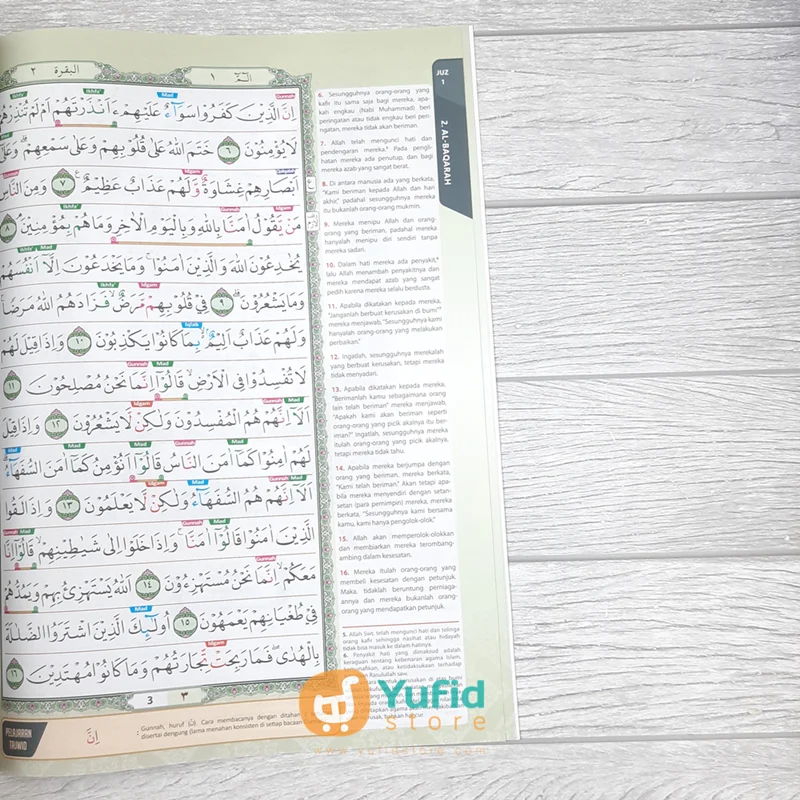 البقرة ٢
الٓمّٓ ١
اِنَّ الَّذِيْنَ كَفَرُوْا سَوَاۤءٌ عَلَيْهِمْ ءَاَنْذَرْتَهُمْ اَمْ لَمْ تُنْذِرْهُمْ
لَا يُؤْمِنُوْنَ ٦ خَتَمَ اللّٰهُ عَلٰى قُلُوْبِهِمْ وَعَلٰى سَمْعِهِمْ وَعَلٰٓى
اَبْصَارِهِمْ غِشَاوَةٌ وَّلَهُمْ عَذَابٌ عَظِيْمٌ ٧ وَمِنَ النَّاسِ
مَنْ يَّقُوْلُ اٰمَنَّا بِاللّٰهِ وَبِالْيَوْمِ الْاٰخِرِ وَمَا هُمْ بِمُؤْمِنِيْنَ ٨
يُخٰدِعُوْنَ اللّٰهَ وَالَّذِيْنَ اٰمَنُوْا وَمَا يَخْدَعُوْنَ اِلَّآ اَنْفُسَهُمْ
وَمَا يَشْعُرُوْنَ ٩ فِيْ قُلُوْبِهِمْ مَّرَضٌ فَزَادَهُمُ اللّٰهُ مَرَضًا
وَلَهُمْ عَذَابٌ اَلِيْمٌ بِمَا كَانُوْا يَكْذِبُوْنَ ١٠ وَاِذَا قِيْلَ لَهُمْ
لَا تُفْسِدُوْا فِى الْاَرْضِ قَالُوْٓا اِنَّمَا نَحْنُ مُصْلِحُوْنَ ١١
اَلَآ اِنَّهُمْ هُمُ الْمُفْسِدُوْنَ وَلٰكِنْ لَّا يَشْعُرُوْنَ ١٢ وَاِذَا قِيْلَ
لَهُمْ اٰمِنُوْا كَمَآ اٰمَنَ النَّاسُ قَالُوْٓا اَنُؤْمِنُ كَمَآ اٰمَنَ السُّفَهَاۤءُ
اَلَآ اِنَّهُمْ هُمُ السُّفَهَاۤءُ وَلٰكِنْ لَّا يَعْلَمُوْنَ ١٣ وَاِذَا لَقُوا
الَّذِيْنَ اٰمَنُوْا قَالُوْٓا اٰمَنَّا وَاِذَا خَلَوْا اِلٰى شَيٰطِيْنِهِمْ قَالُوْٓا اِنَّا
مَعَكُمْ اِنَّمَا نَحْنُ مُسْتَهْزِءُوْنَ ١٤ اَللّٰهُ يَسْتَهْزِئُ بِهِمْ وَيَمُدُّهُمْ
فِيْ طُغْيَانِهِمْ يَعْمَهُوْنَ ١٥ اُولٰۤىِٕكَ الَّذِيْنَ اشْتَرَوُا الضَّلٰلَةَ
بِالْهُدٰى فَمَا رَبِحَتْ تِّجَارَتُهُمْ وَمَا كَانُوْا مُهْتَدِيْنَ ١٦
3 ٣
JUZ
1
2. AL-BAQARAH
6. Sesungguhnya orang-orang yang
kafir itu sama saja bagi mereka, apa-
kah engkau (Nabi Muhammad) beri
peringatan atau tidak engkau beri pe-
ringatan, mereka tidak akan beriman.
7. Allah telah mengunci hati dan
pendengaran mereka.⁵ Pada pengli-
hatan mereka ada penutup, dan bagi
mereka azab yang sangat berat.
8. Di antara manusia ada yang berkata,
"Kami beriman kepada Allah dan hari
akhir," padahal sesungguhnya mereka
itu bukanlah orang-orang mukmin.
9. Mereka menipu Allah dan orang-
orang yang beriman, padahal mereka
hanyalah menipu diri sendiri tanpa
mereka sadari.
10. Dalam hati mereka ada penyakit,⁶
lalu Allah menambah penyakitnya dan
mereka mendapat azab yang sangat
pedih karena mereka selalu berdusta.
11. Apabila dikatakan kepada mereka,
"Janganlah berbuat kerusakan di bumi"⁷
mereka menjawab, "Sesungguhnya kami
hanyalah orang-orang yang melakukan
perbaikan."
12. Ingatlah, sesungguhnya merekalah
yang berbuat kerusakan, tetapi mereka
tidak menyadari.
13. Apabila dikatakan kepada mereka,
"Berimanlah kamu sebagaimana orang
lain telah beriman" mereka menjawab,
"Apakah kami akan beriman seperti
orang-orang yang picik akalnya itu ber-
iman?" Ingatlah, sesungguhnya mereka
itulah orang-orang yang picik akalnya,
tetapi mereka tidak tahu.
14. Apabila mereka berjumpa dengan
orang yang beriman, mereka berkata,
"Kami telah beriman." Akan tetapi apa-
bila mereka menyendiri dengan setan-
setan (para pemimpin) mereka, mereka
berkata, "Sesungguhnya kami bersama
kamu, kami hanya pengolok-olok."
15. Allah akan memperolok-olokkan
dan membiarkan mereka terombang-
ambing dalam kesesatan.
16. Mereka itulah orang-orang yang
membeli kesesatan dengan petunjuk.
Maka, tidaklah beruntung perniaga-
annya dan mereka bukanlah orang-
orang yang mendapatkan petunjuk.
5. Allah Swt. telah mengunci hati dan telinga
orang kafir sehingga nasihat atau hidayah
tidak bisa masuk ke dalam hatinya.
6. Penyakit hati yang dimaksud adalah
keraguan tentang kebenaran agama Islam,
Rasulullah saw.
PELAJARAN
TAJWID
اِنَّ
: Gunnah, huruf
Cara membacanya dengan ditahan
disertai dengung (lama menahan konsisten di setiap bacaan
Yufid
store
www.yufidstore.com